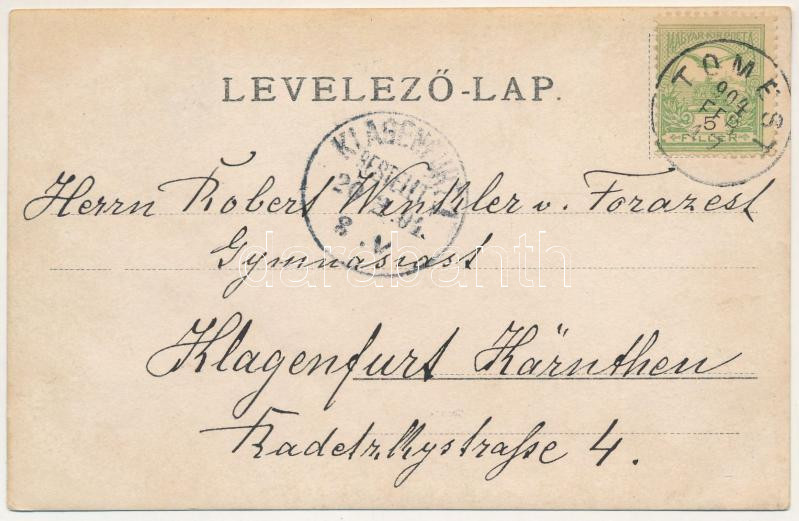 MAGYAR KIR. POSTA
5
FILLÉR
TOMEST
904
FEB
LEVELEZŐ-LAP.
KLAGENFURT 1
BESTELLT
20. 2. 04.
8. V
Herrn Robert Winkler v. Forazest
Gymnasiast
darabanth
Klagenfurt Kärnthen
Radetzkystraſse 4.